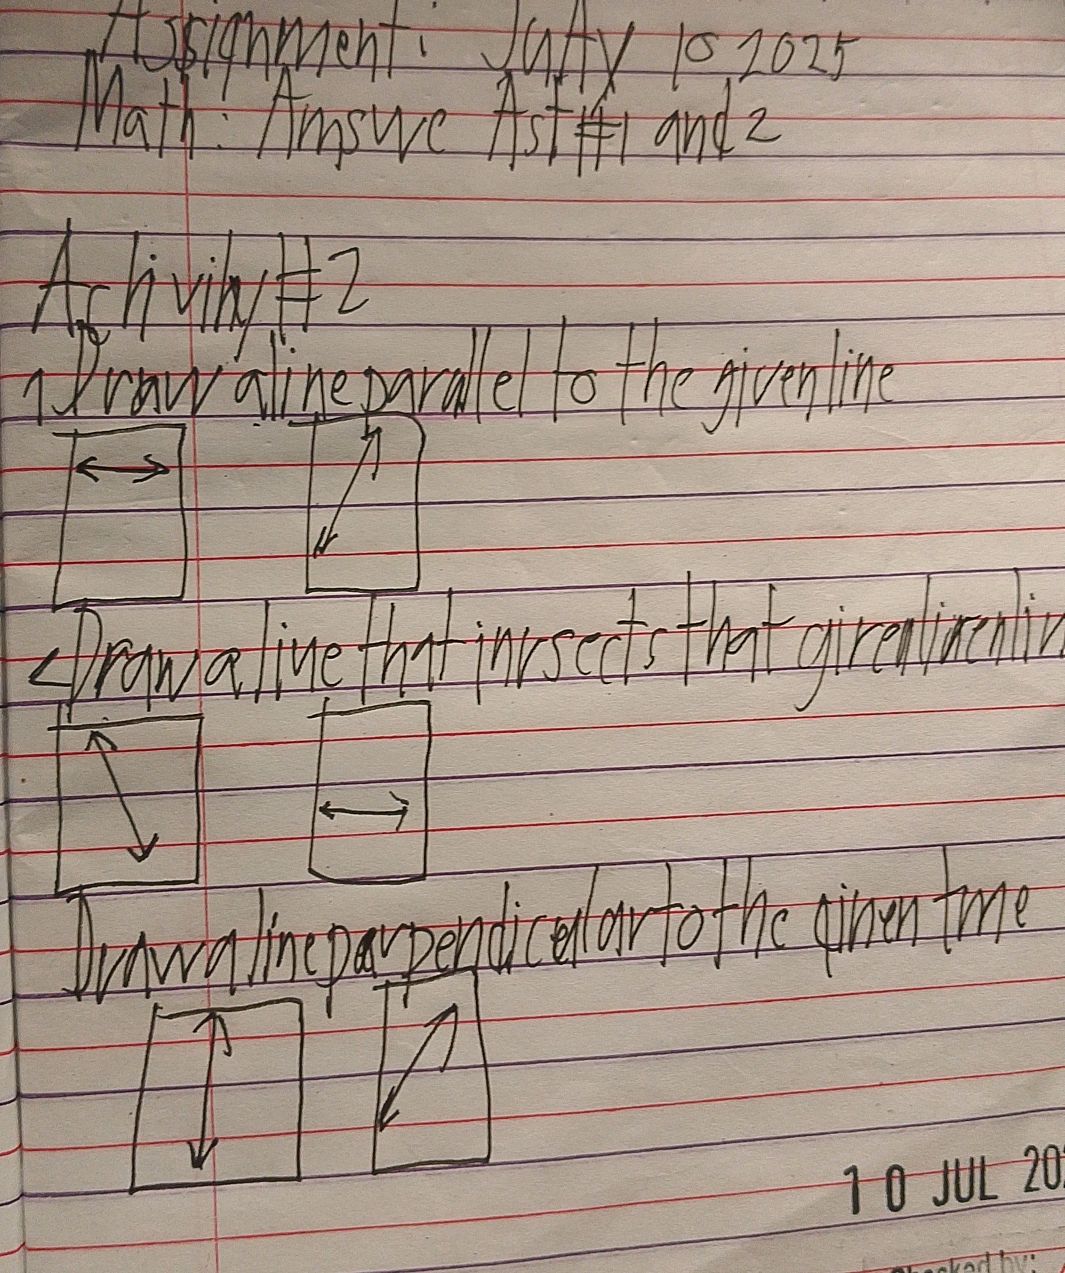 Assignment: July 10 2025
Math: Amswe Ast #1 and 2
Activity #2
1 Draw a line parallel to the given line
2 Draw a line that inrsects that given linenlin
Draw a line parpendicelar to the ginen tme
10 JUL 20
Checked by: